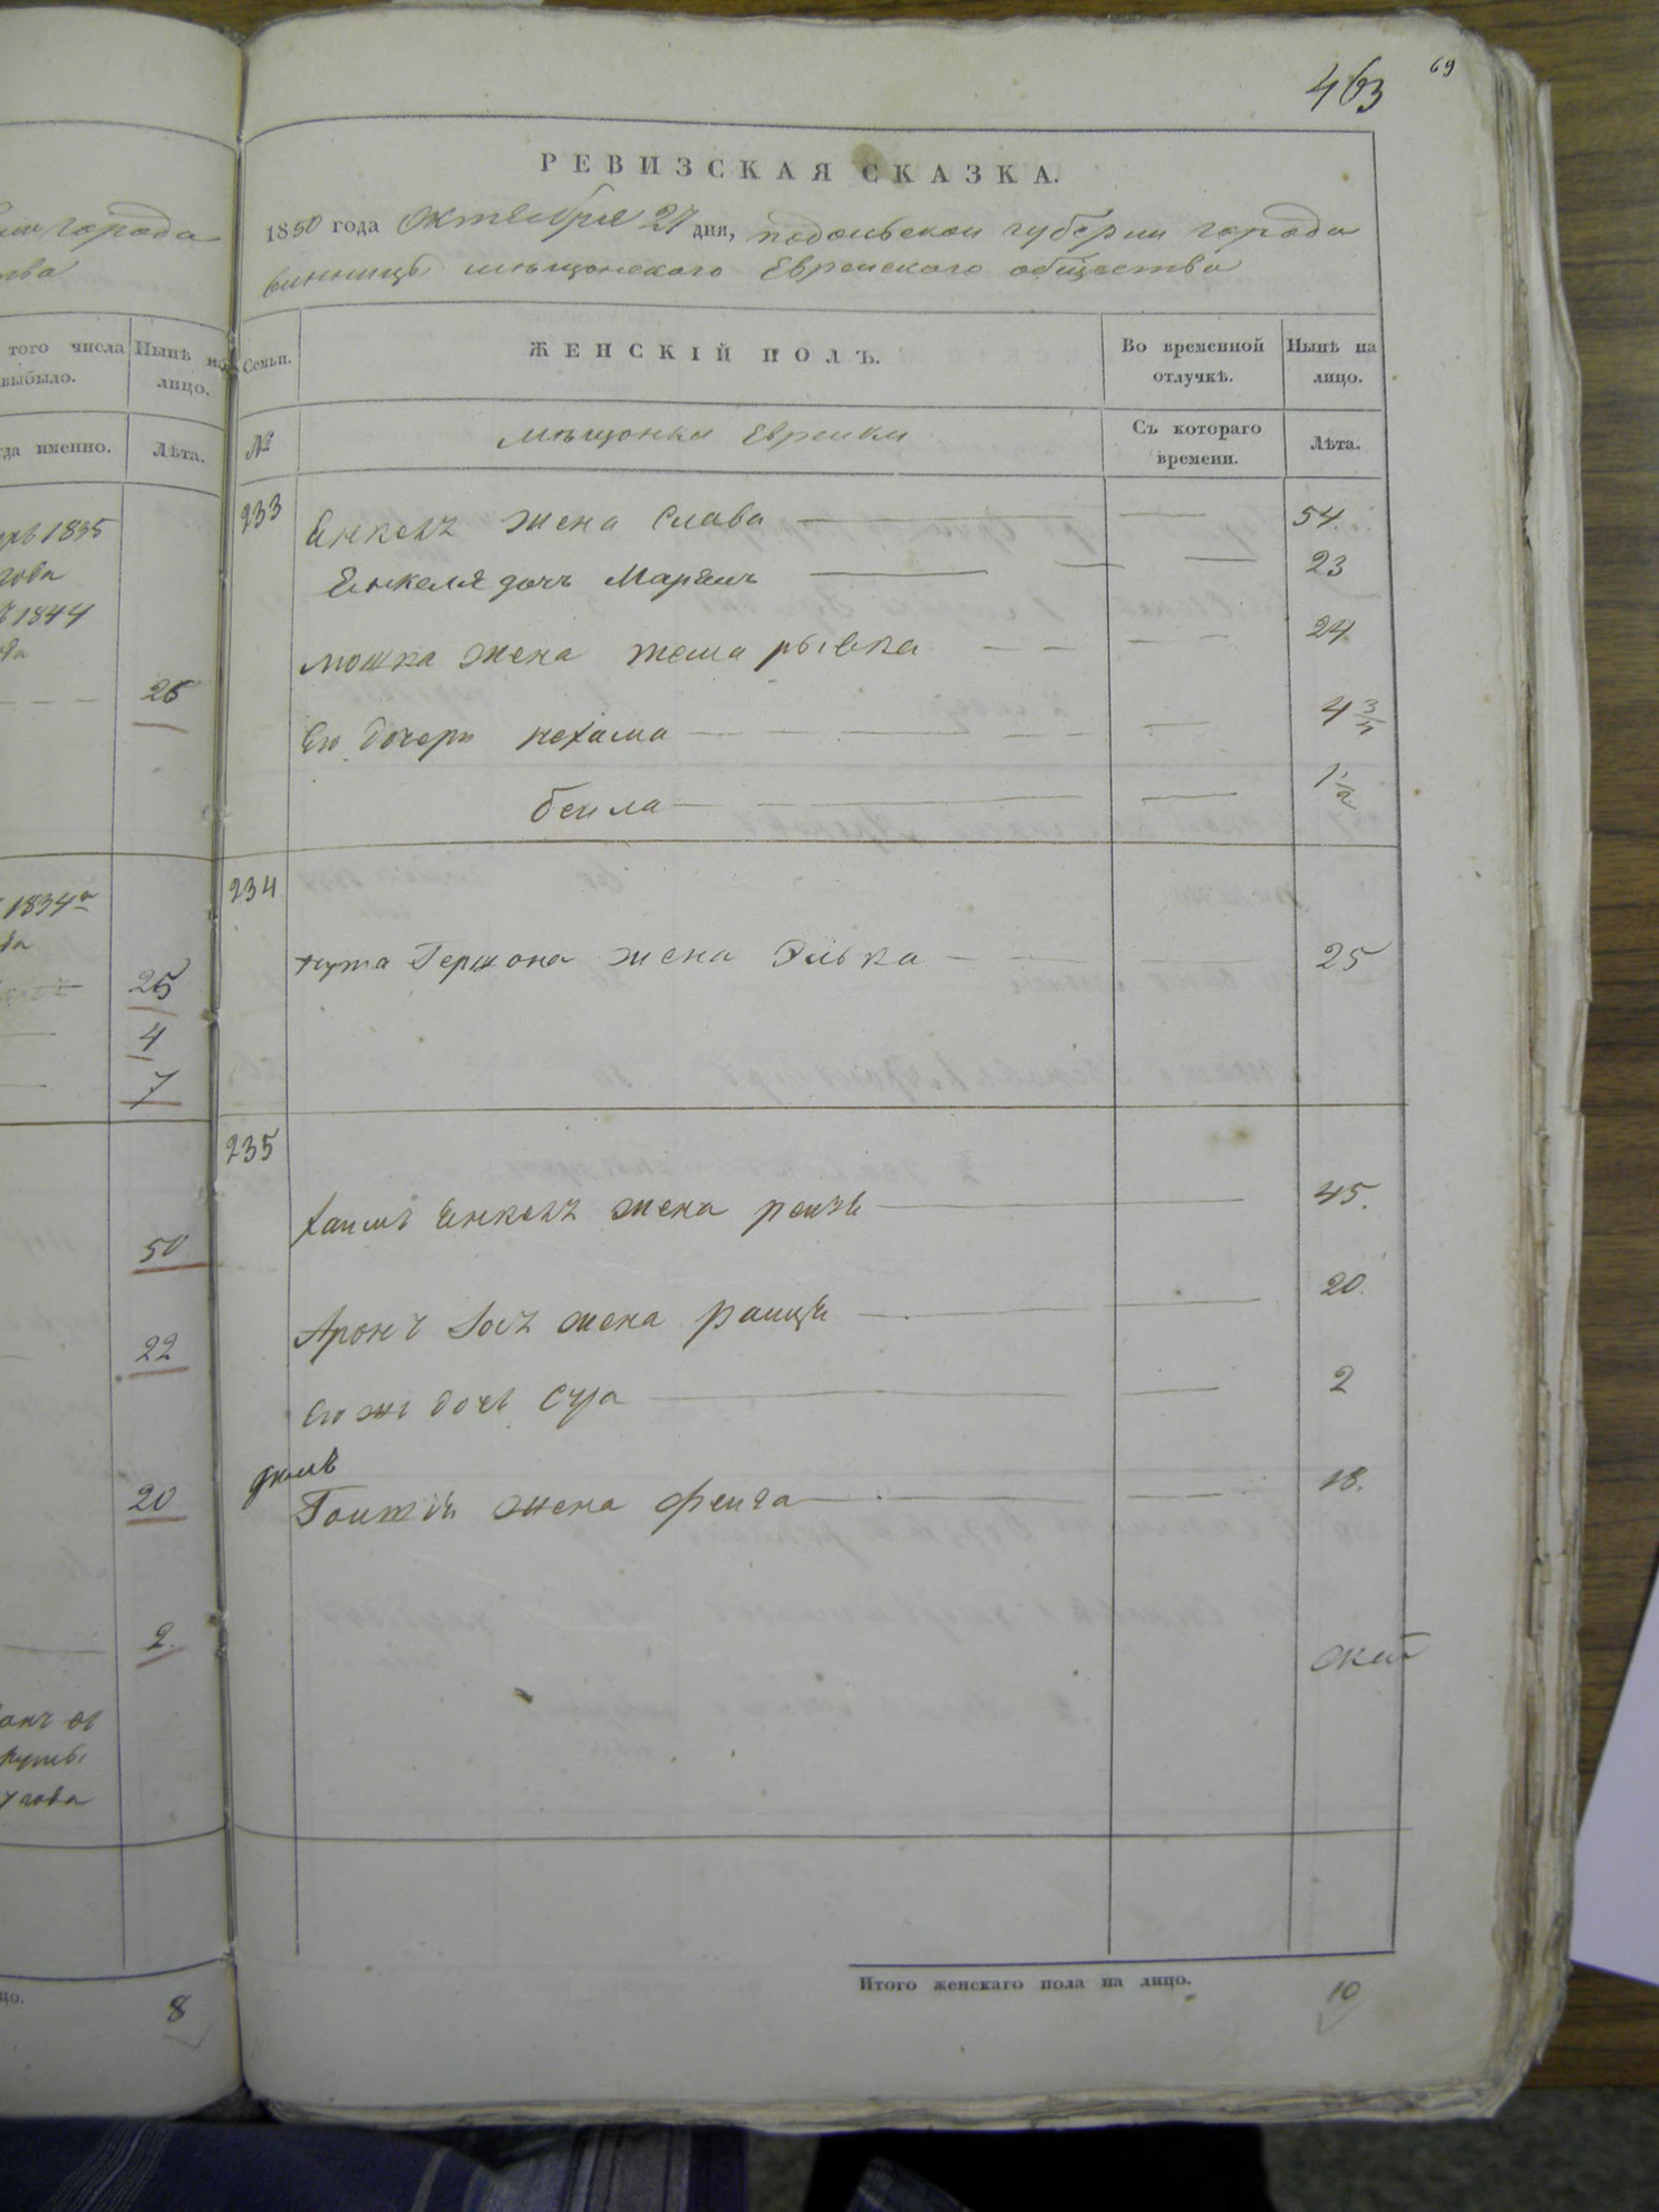 463 69
РЕВИЗСКАЯ СКАЗКА.
1850 года Октября 27 дня, подольской губернии города
винницы мѣщонского Еврейского общества
Семьи. ЖЕНСКІЙ ПОЛЪ. Во временной отлучкѣ. Нынѣ на лицо.
№ мѣщонки Еврейки Съ котораго времени. Лѣта.
233 Енкелъ жена Слава 54.
Енкеля дочь Марямъ 23
мошка жена рывка 24
Его дочери нехама 4 3/4
бейла 1 1/2
234
нута Гершона жена Элька 25
235
хаимъ Енкелъ жена рейзя 45.
Аронъ жена 20.
его жъ дочь Сура 2
жена фейга 18.
Итого женскаго пола на лицо. 10
города
того числа выбыло. Нынѣ на лицо.
именно. Лѣта.
1835
1844
26
1834
25
4
7
50
22
20
2
года
8